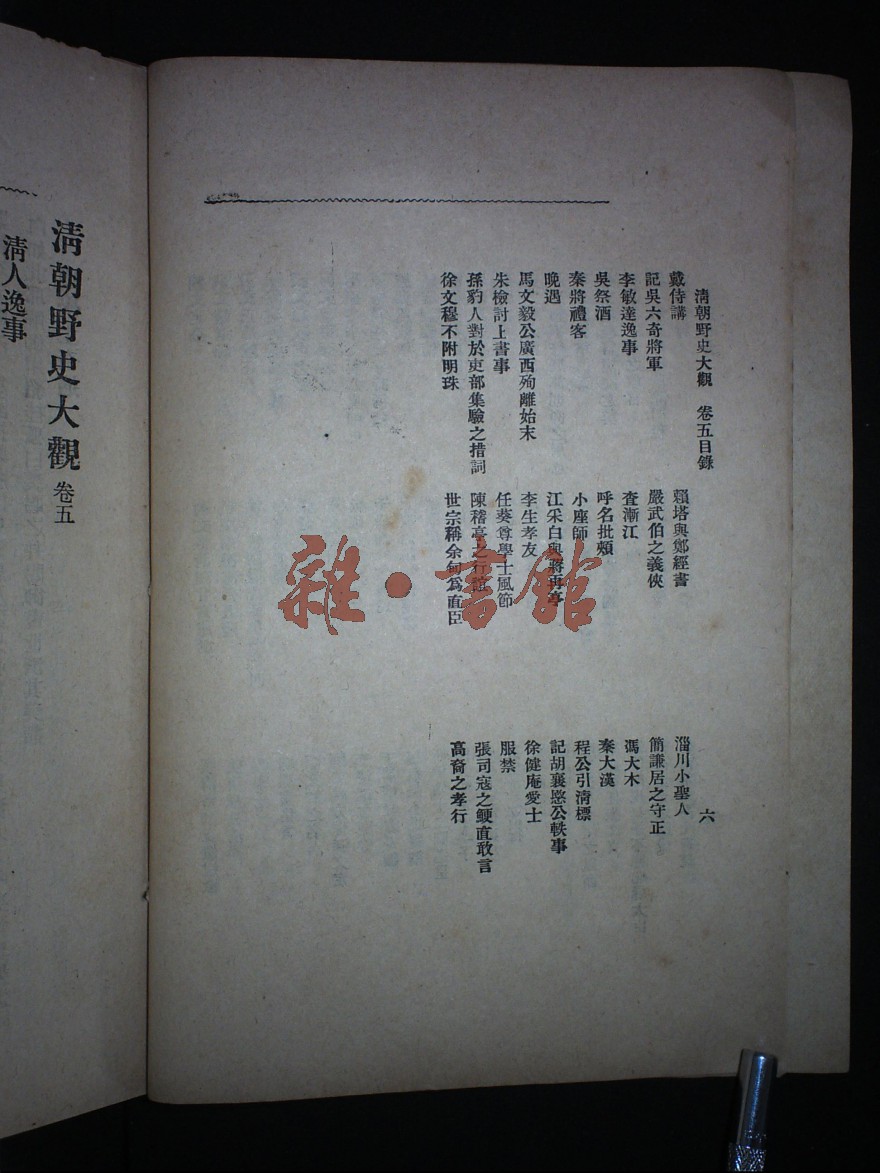 清朝野史大觀 卷五目錄 六
戴侍講 賴塔與鄭經書 淄川小聖人
記吳六奇將軍 嚴武伯之義俠 簡謙居之守正
李敏達逸事 查漸江 馮大木
吳祭酒 呼名批頰 秦大漢
秦將禮客 小座師 程公引清標
晚遇 江采白與蔣再亭 記胡襄愍公軼事
馬文毅公廣西殉離始末 李生孝友 徐健庵愛士
朱檢討上書事 任葵尊學士風節 服禁
孫豹人對於吏部集驗之措詞 陳稽亭之行誼 張司寇之鯁直敢言
徐文穆不附明珠 世宗稱余甸爲直臣 高裔之孝行
清朝野史大觀 卷五
清人逸事
雜·書館